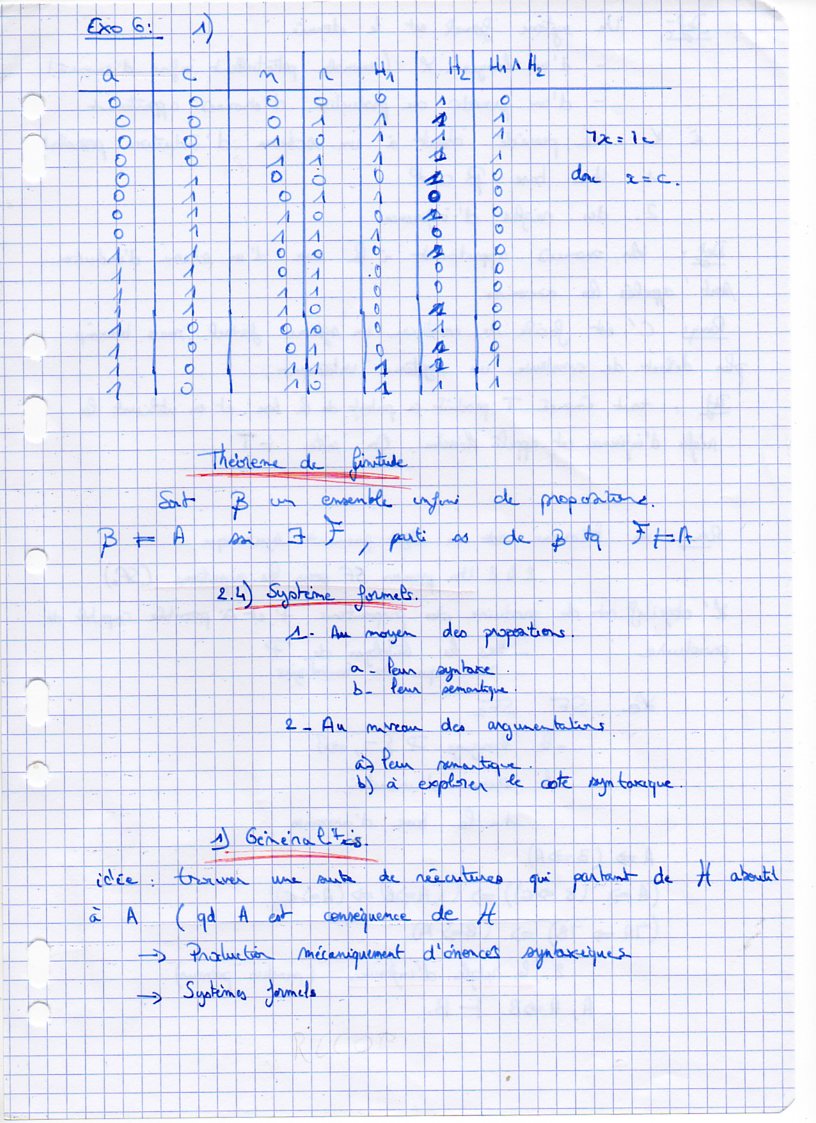 Exo 6: 1)
a c n r H₁ H₂ H₁ ∧ H₂
0 0 0 0 0 1 0
0 0 0 1 1 1 1
0 0 1 0 1 1 1 ¬x = ¬c
0 0 1 1 1 1 1
0 1 0 0 0 1 0 donc x = c.
0 1 0 1 1 0 0
0 1 1 0 0 1 0
0 1 1 1 1 0 0
1 1 0 0 0 1 0
1 1 0 1 0 0 0
1 1 1 1 0 0 0
1 1 1 0 0 1 0
1 0 0 0 0 1 0
1 0 0 1 0 1 0
1 0 1 1 1 1 1
1 0 1 0 1 1 1
Théorème de finitude
Soit B un ensemble infini de propositions.
B ⊨ A ssi ∃ F, parti de B tq F ⊨ A
2.4) Système formels.
1- Au moyen des propositions.
a- leur syntaxe.
b- leur sémantique.
2- Au niveau des argumentations
a) leur sémantique.
b) à explorer le coté syntaxique.
1) Généralités.
idée : trouver une suite de réécritures qui partant de H aboutit
à A (qd A est conséquence de H
→ Production mécaniquement d'énoncés syntaxiques
→ Systèmes formels